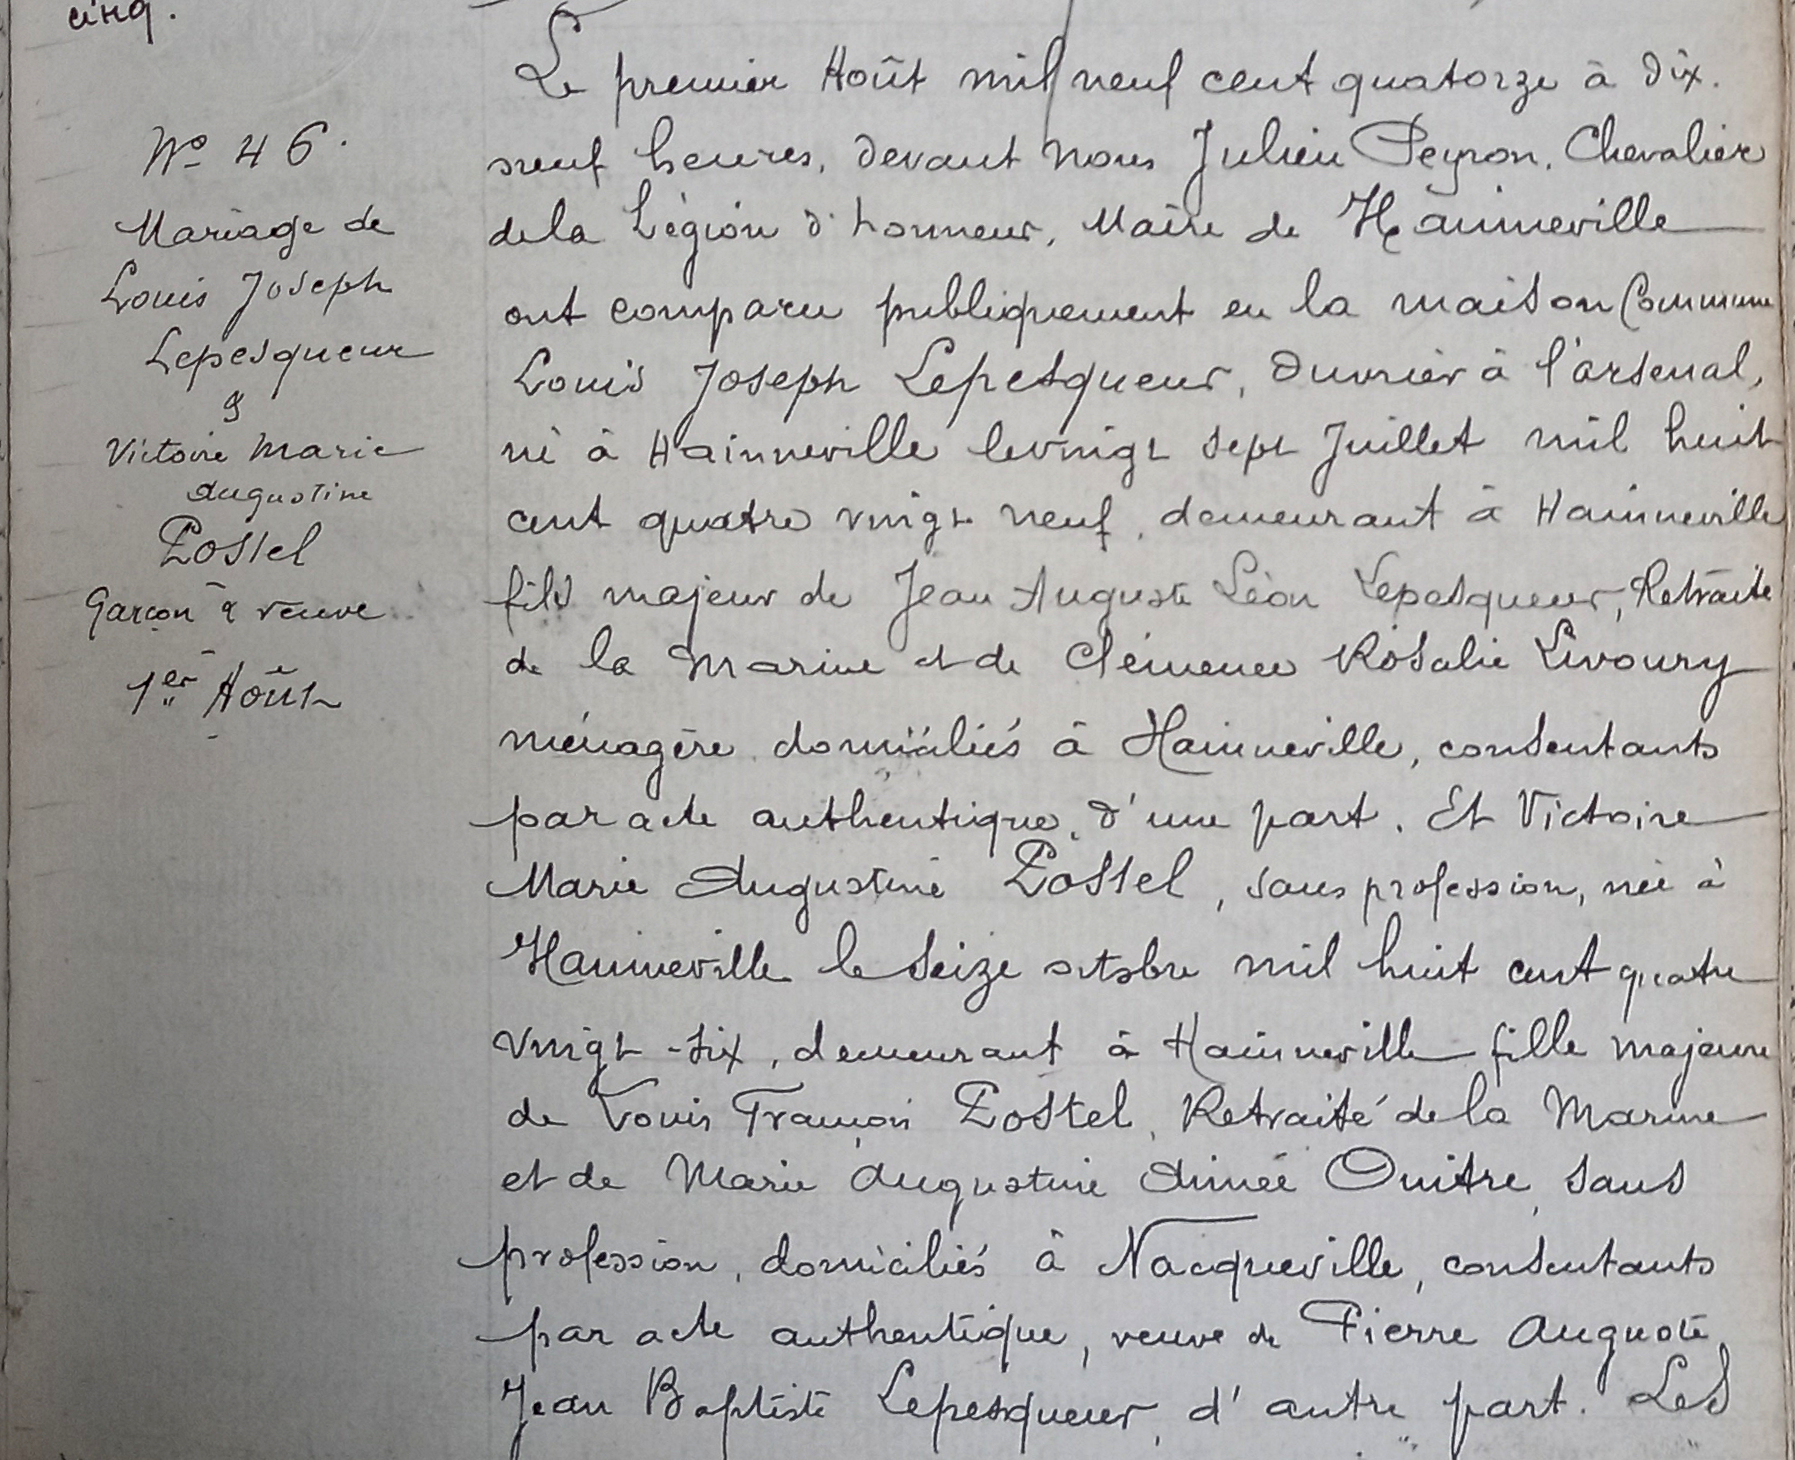 cinq.
Nº 46.
Mariage de
Louis Joseph
Lepesqueur
&
Victoire Marie
Augustine
Postel
Garçon & veuve
1er Août
Le premier Août mil neuf cent quatorze à dix.
neuf heures, devant nous Julien Peyron, Chevalier
de la Légion d'honneur, Maire de Hainneville
ont comparu publiquement en la maison Commune
Louis Joseph Lepesqueur, Ouvrier à l'arsenal,
né à Hainneville le vingt sept Juillet mil huit
cent quatre vingt neuf, demeurant à Hainneville
fils majeur de Jean Auguste Léon Lepesqueur, Retraité
de la Marine et de Clémence Rosalie Livoury
ménagère domiciliés à Hainneville, consentants
par acte authentique, d'une part. Et Victoire
Marie Augustine Postel, sans profession, née à
Hainneville le seize octobre mil huit cent quatre
vingt-six, demeurant à Hainneville fille majeure
de Louis François Postel, Retraité de la Marine
et de Marie Augustine Aimée Ouitre, sans
profession, domiciliés à Nacqueville, consentants
par acte authentique, veuve de Pierre Auguste
Jean Baptiste Lepesqueur, d'autre part. Les